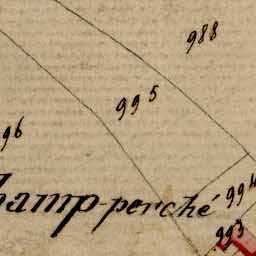 988
995
96
hamp-perché
994
993